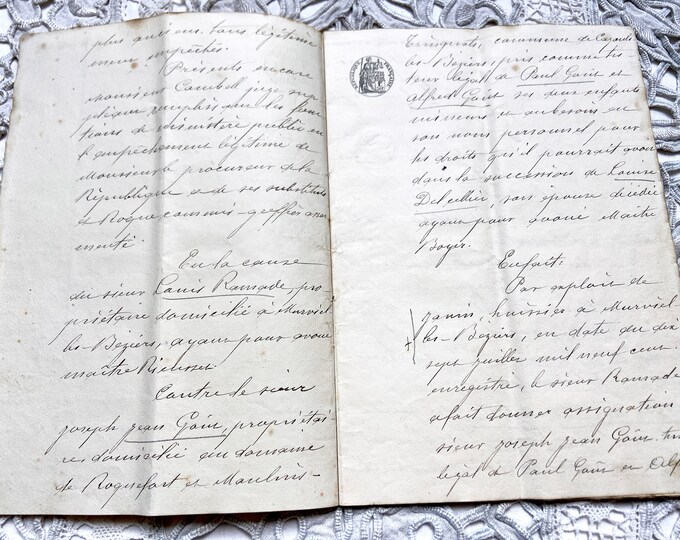 plus anciens tous légitime
ment empêchés.
Présents encore
Monsieur Cambell juge sup
pléant remplissant les fonc
tions de ministère public en
l'empêchement légitime de
Monsieur le procureur de la
République et de ses substituts
et Roque commis-greffier asser
menté.
En la cause
du sieur Louis Ramade, pro
priétaire domicilié à Murviel
les-Béziers, ayant pour avoué
maître Rieusset
Contre le sieur
Joseph Jean Goûn, propriétai
re domicilié au domaine
de Roquefort et Moulins-
Trinquats, commune de
les Béziers pris comme tu
teur légal de Paul Goûn et
Alfred Goûn ses deux enfants
mineurs et au besoin en
son nom personnel pour
les droits qu'il pourrait avoir
dans la succession de Louise
Delcellier, son épouse décédée
ayant pour avoué Maître
Boyer.
En fait:
Par exploit de
huissier à Murviel
les-Béziers, en date du dix
sept juillet mil neuf cent
enregistré, le sieur Ramade
a fait donner assignation
sieur Joseph Jean Goûn tu
légal de Paul Goûn et Alf